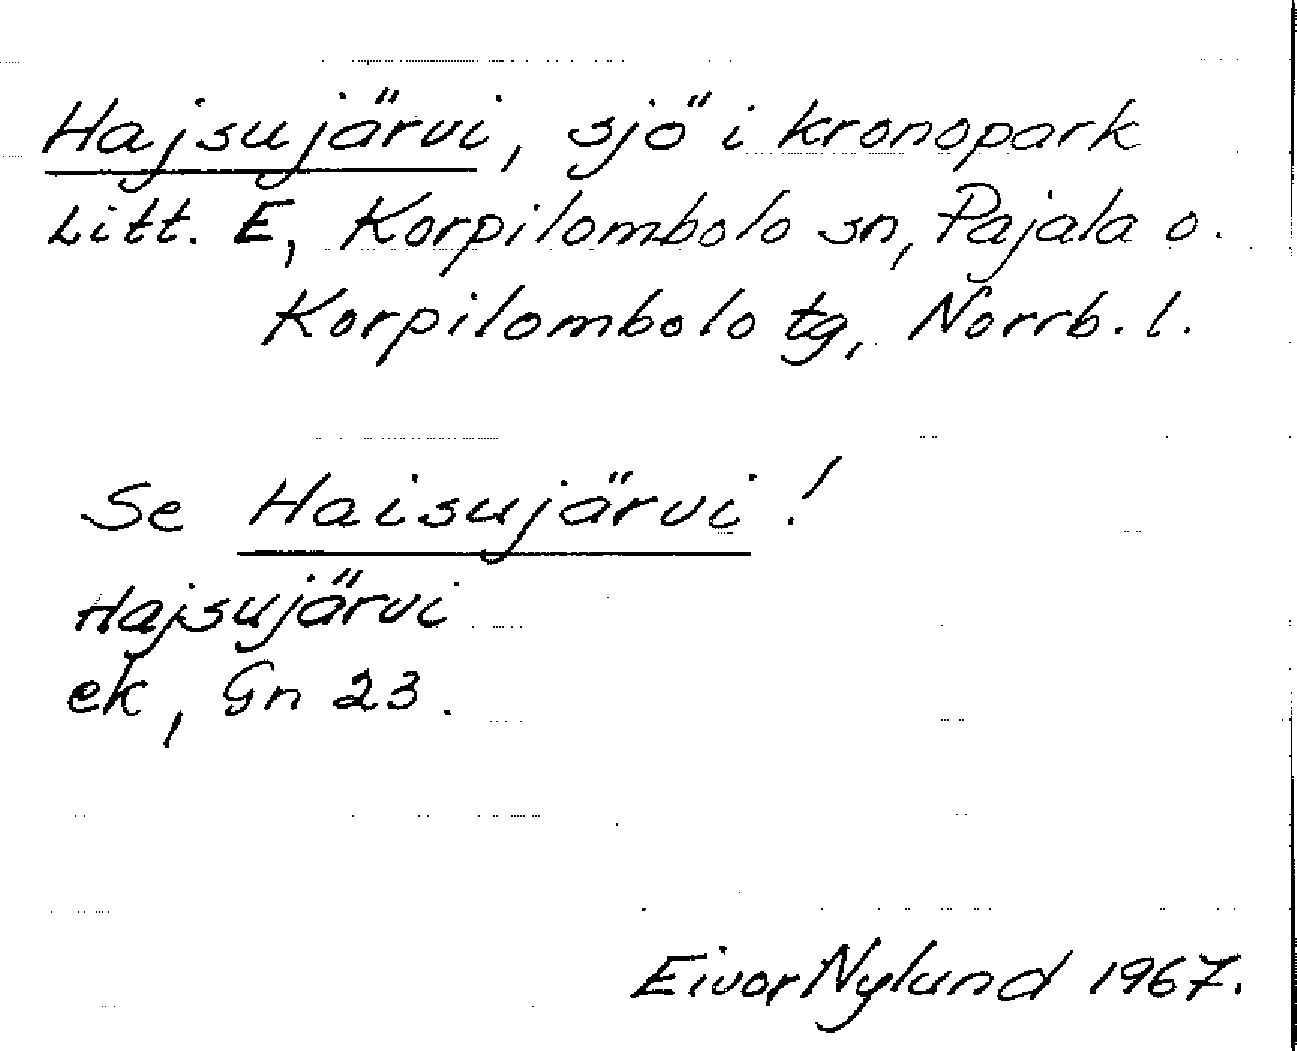 Hajsujärvi, sjö i kronopark
Litt. E, Korpilombolo sn, Pajala o.
Korpilombolo tg, Norrb. l.
Se Haisujärvi!
Hajsujärvi
ek, Gn 23.
Eivor Nylund 1967.